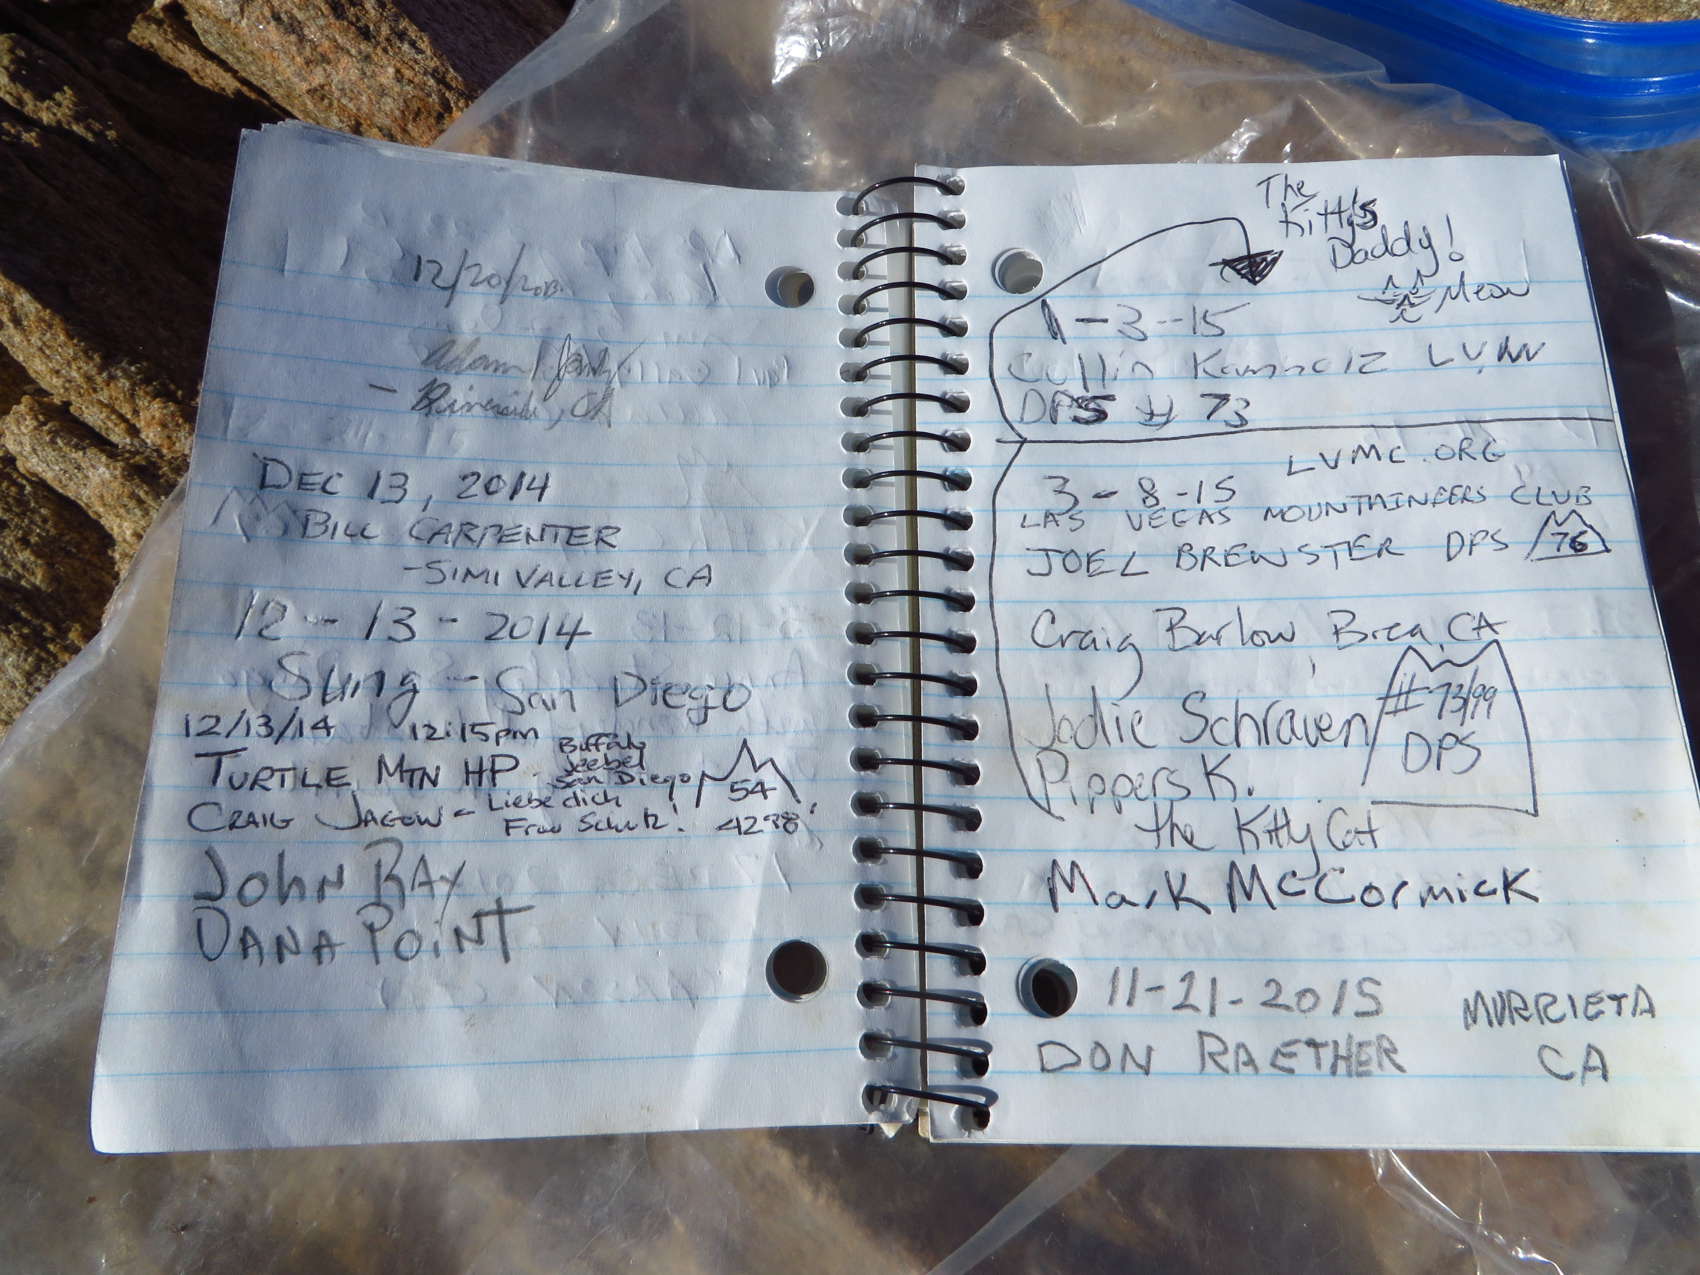 12/20/2013
Adam
- Riverside, CA
DEC 13, 2014
BILL CARPENTER
-SIMI VALLEY, CA
12-13-2014
Sung - San Diego
12/13/14 12:15pm
TURTLE MTN HP
Buffaly
Jeebel
San Diego
54
CRAIG JAGOW -
Liebe dich
Frau Schutz!
4298!
JOHN RAY
DANA POINT
The
Kitty's
Daddy!
Meow
1-3-15
Cullin LV, NV
DPS # 73
LVMC.ORG
3-8-15
LAS VEGAS MOUNTAINEERS CLUB
JOEL BREWSTER DPS 76
Craig Barlow, Brea, CA
Jodie Schraven
#73/99
DPS
Pippers K.
the Kitty Cat
Mark McCormick
11-21-2015 MURRIETA
DON RAETHER CA